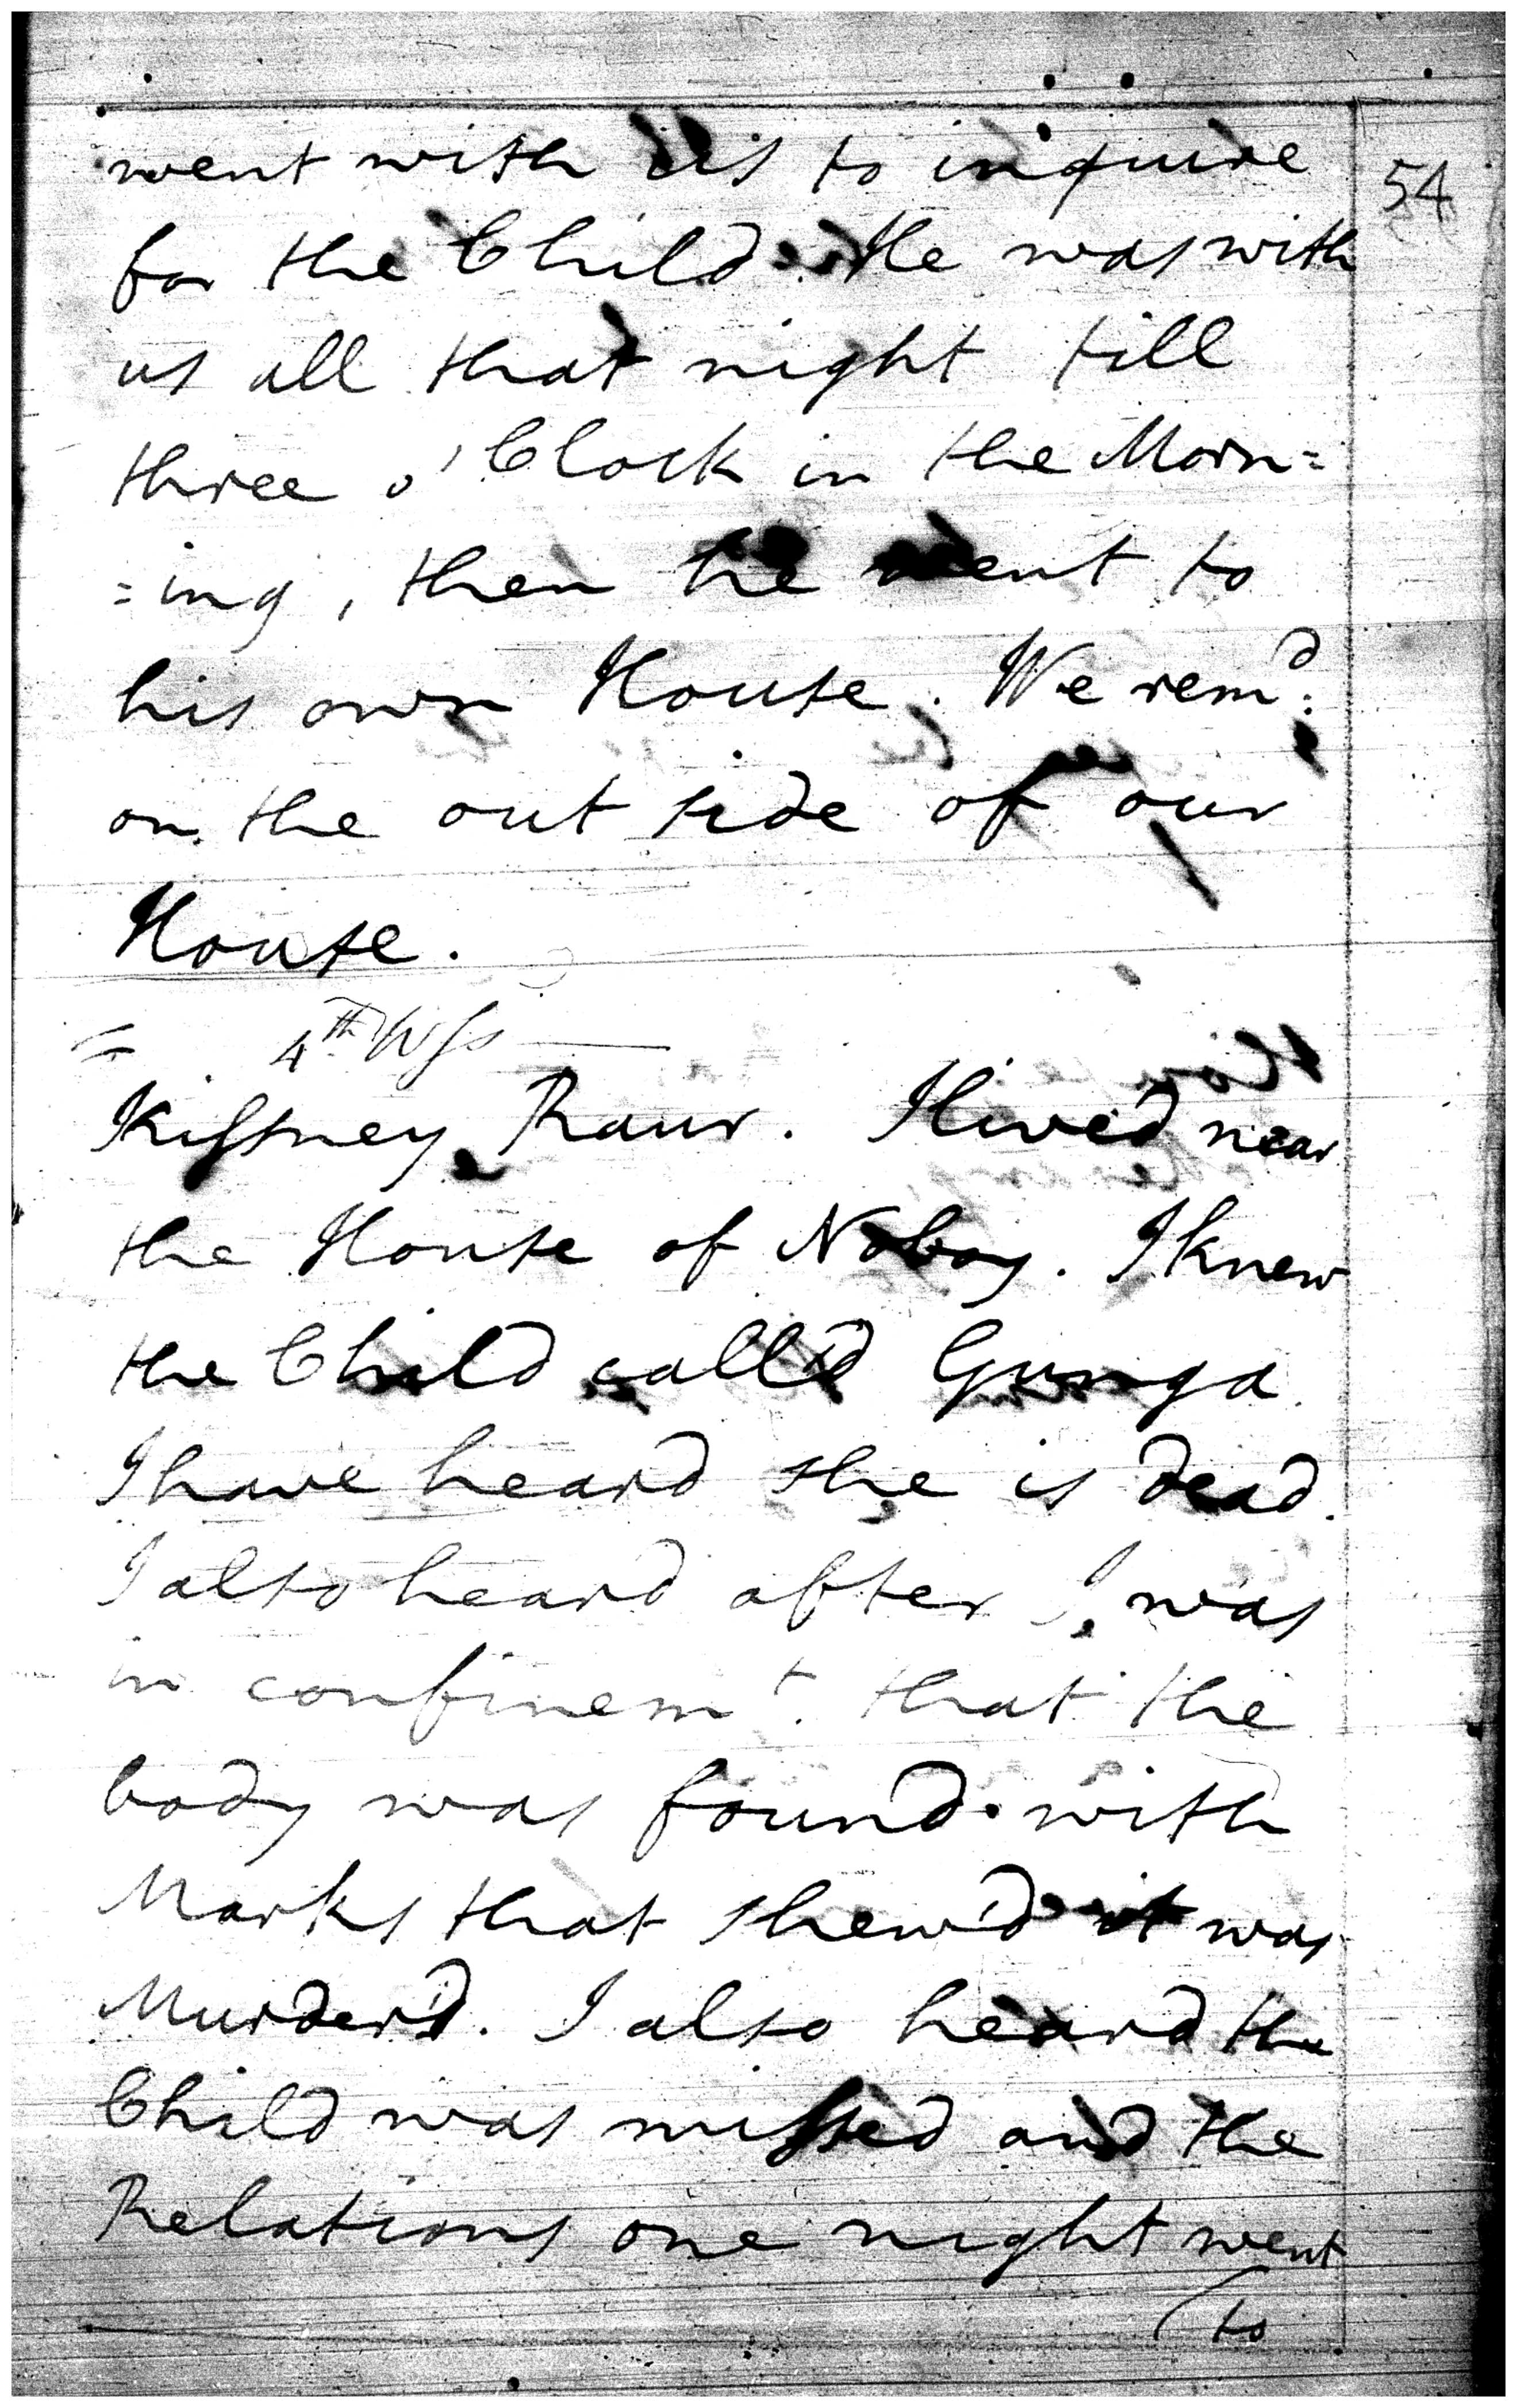 went with us to inquire
54
for the Child. He was with
us all that night till
three o'Clock in the Morn=
=ing, then he went to
his own House. We remd.
on the out side of our
House.
4th Wss
Kissney Raur. I lived near
the House of Noboy. I knew
the Child call'd Gunga
I have heard she is dead.
I also heard after I was
in confinemt. that the
body was found with
Marks that shew'd it was
Murder'd. I also heard the
Child was missed and the
Relations one night went
(to